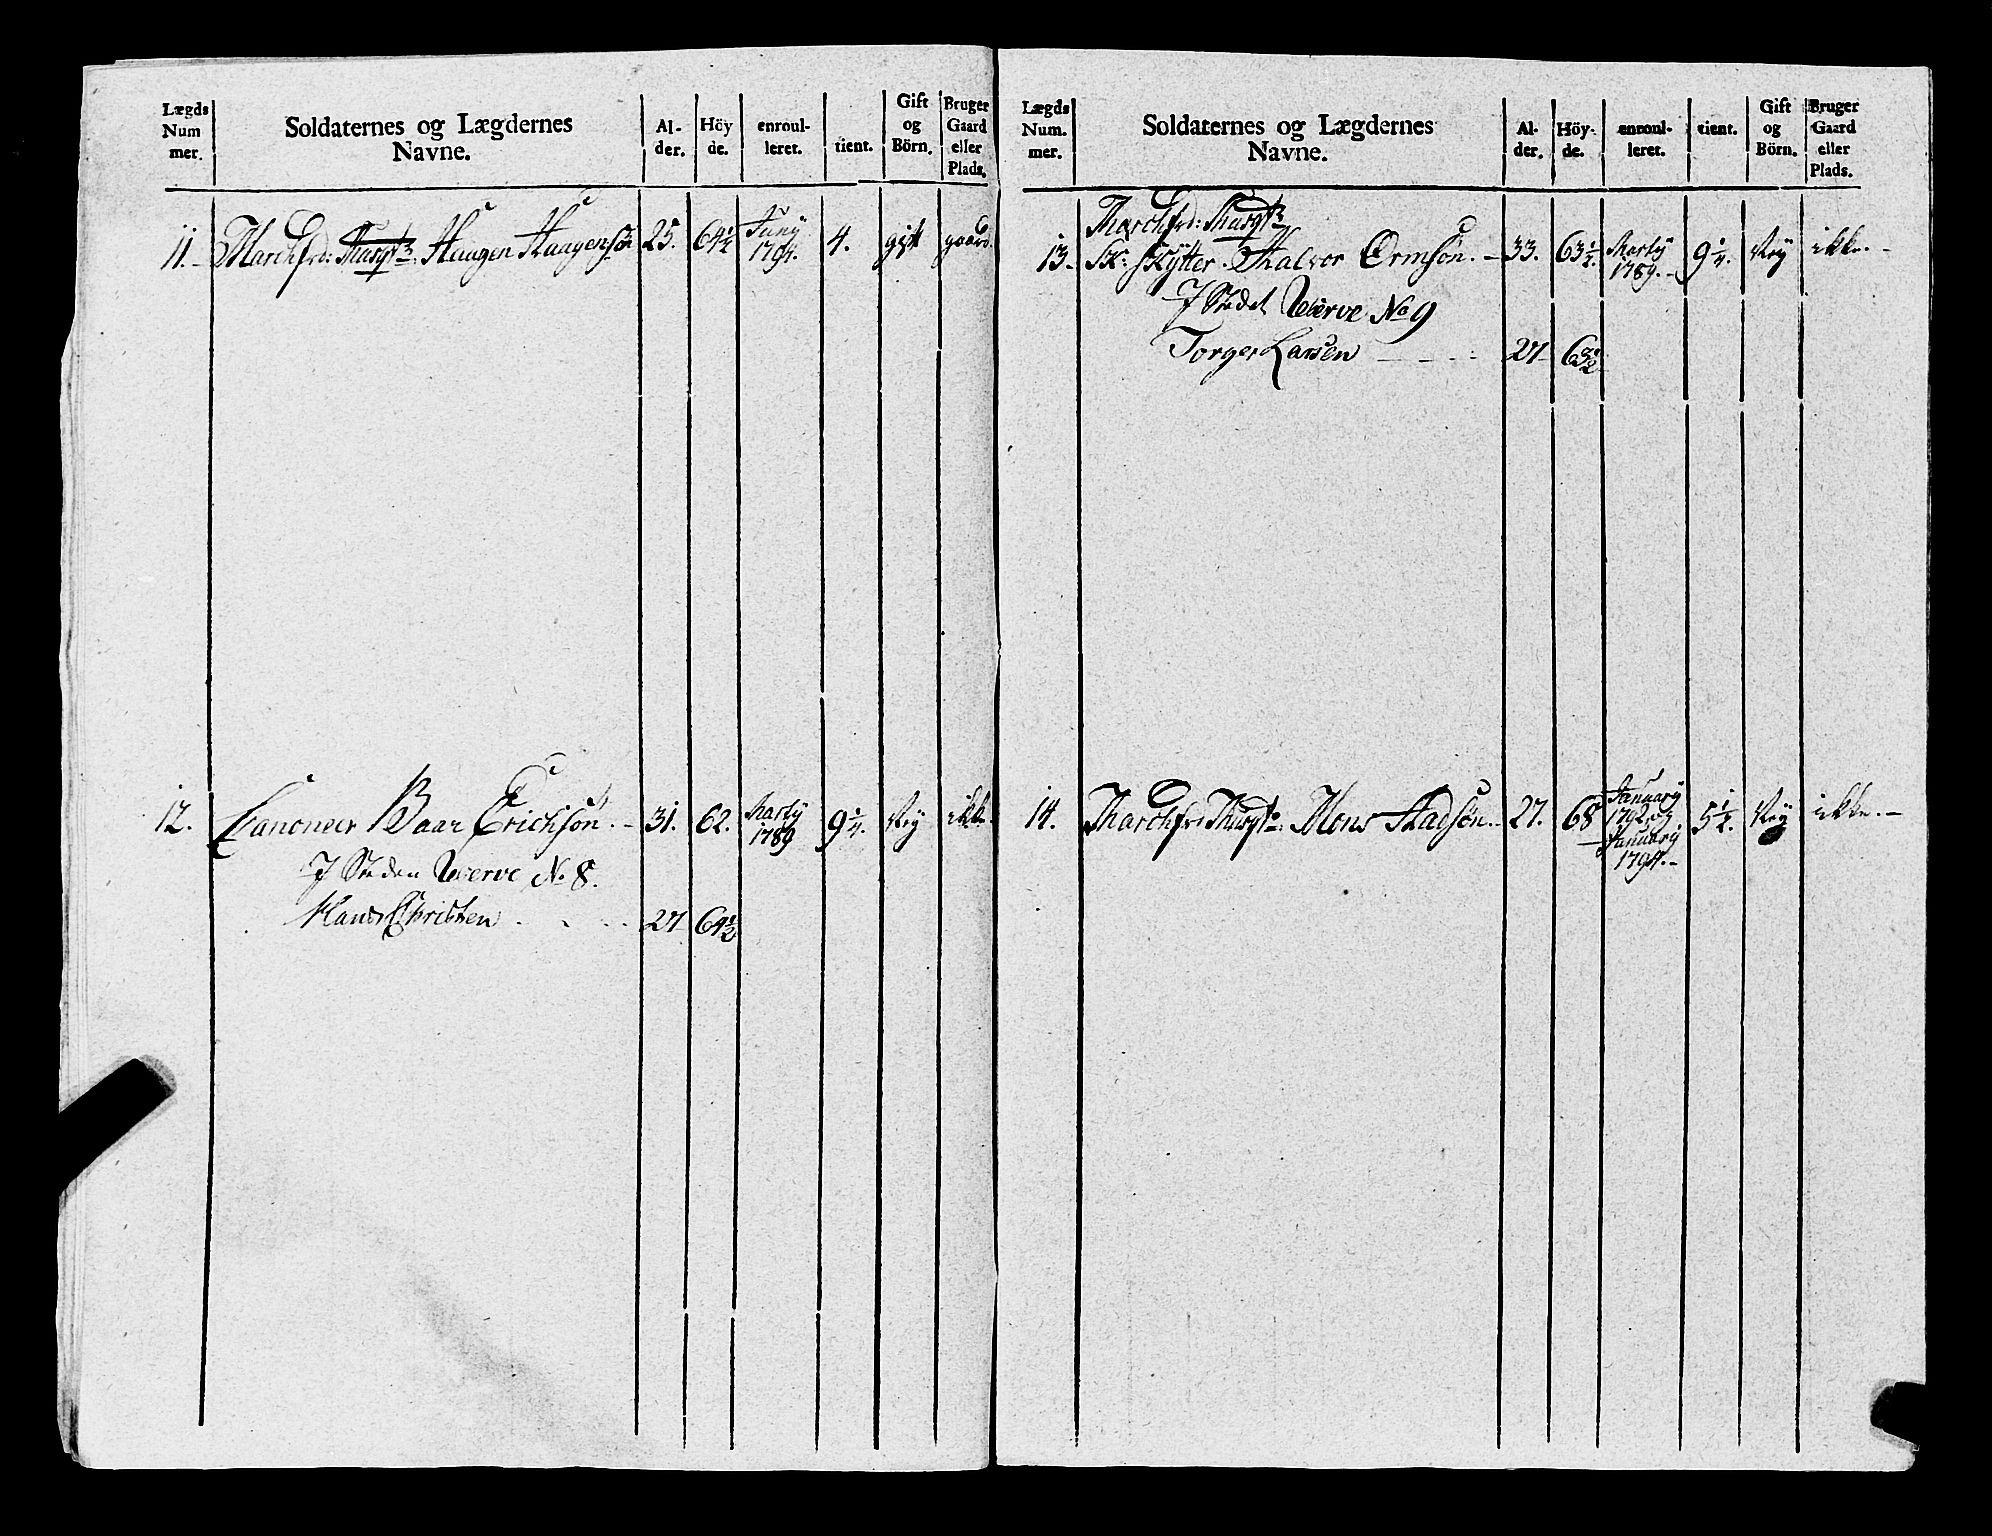 Lægds Num mer. Soldaternes og Lægdernes Navne. Al- der. Höy de. enroul- leret. tient. Gift og Börn. Bruger Gaard eller Plads.
11. Marchfrd: Musqt: Haagen Haagensøn 25. 64 1/2 Juny 1794. 4. gift gaard.
12. Canoneer Baar Erichsøn. 31. 62. Marty 1789 9 1/4. Ney ikke.
J Steden Werve No 8.
Hans Christen 27 64 1/2
Lægds Num. mer. Soldaternes og Lægdernes Navne. Al- der. Höy- de. enroul- leret. tient. Gift og Börn. Bruger Gaard eller Plads.
Marchfrd: Musqt:
13. SK: Skytter. Halvor Ormsøn. 33. 63 1/2. Marty 1789. 9 1/4. Ney ikke.
J Stedet Werve No 9
Torger Larsen 27 63 1/2
14. Marchfrd Musqt: Mons Madsøn. 27. 68 January 1792 og January 1794. 5 1/2. Ney ikke.